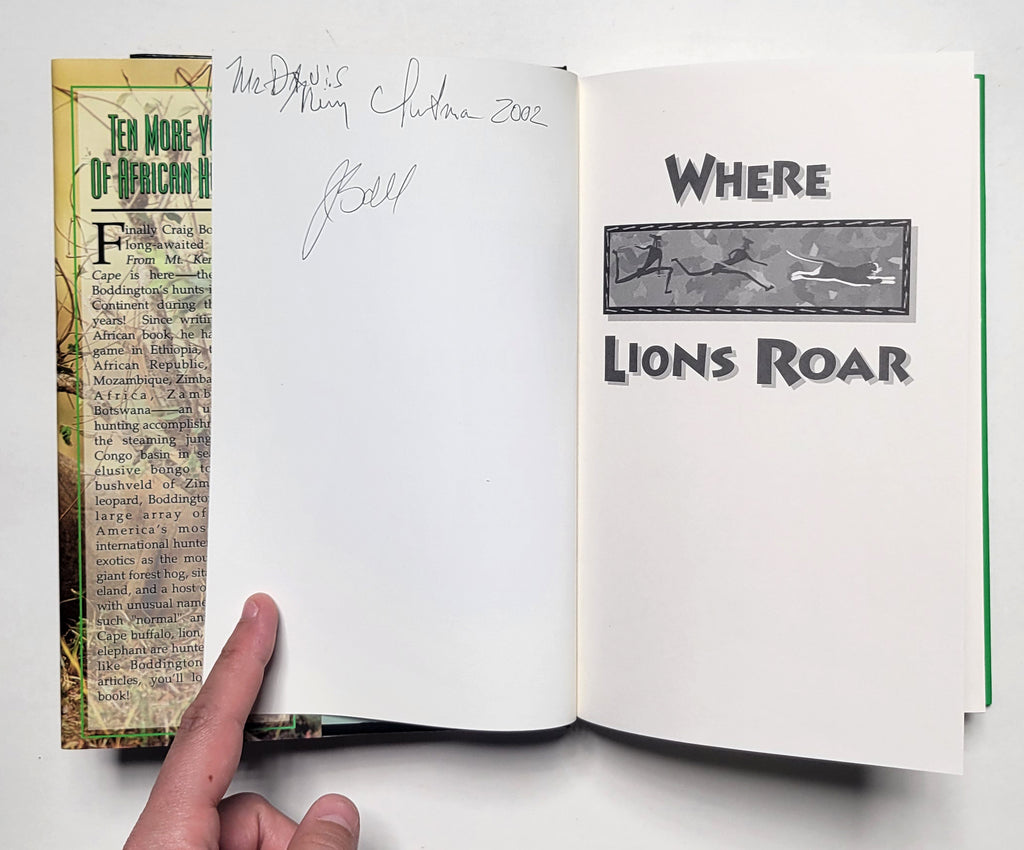 TEN MORE Y
OF AFRICAN H
Finally Craig Bo
long-awaited
From Mt. Ken
Cape is here—the
Boddington's hunts i
Continent during th
years! Since writin
African book, he ha
game in Ethiopia, t
African Republic,
Mozambique, Zimba
Africa, Zamb
Botswana—an u
hunting accomplish
the steaming jung
Congo basin in se
elusive bongo to
bushveld of Zim
leopard, Boddingto
large array of
America's mos
international hunte
exotics as the mou
giant forest hog, sit
eland, and a host o
with unusual name
such "normal" an
Cape buffalo, lion,
elephant are hunte
like Boddington
articles, you'll lo
book!
Mr DAVIS
Merry Christmas 2002
WHERE
LIONS ROAR